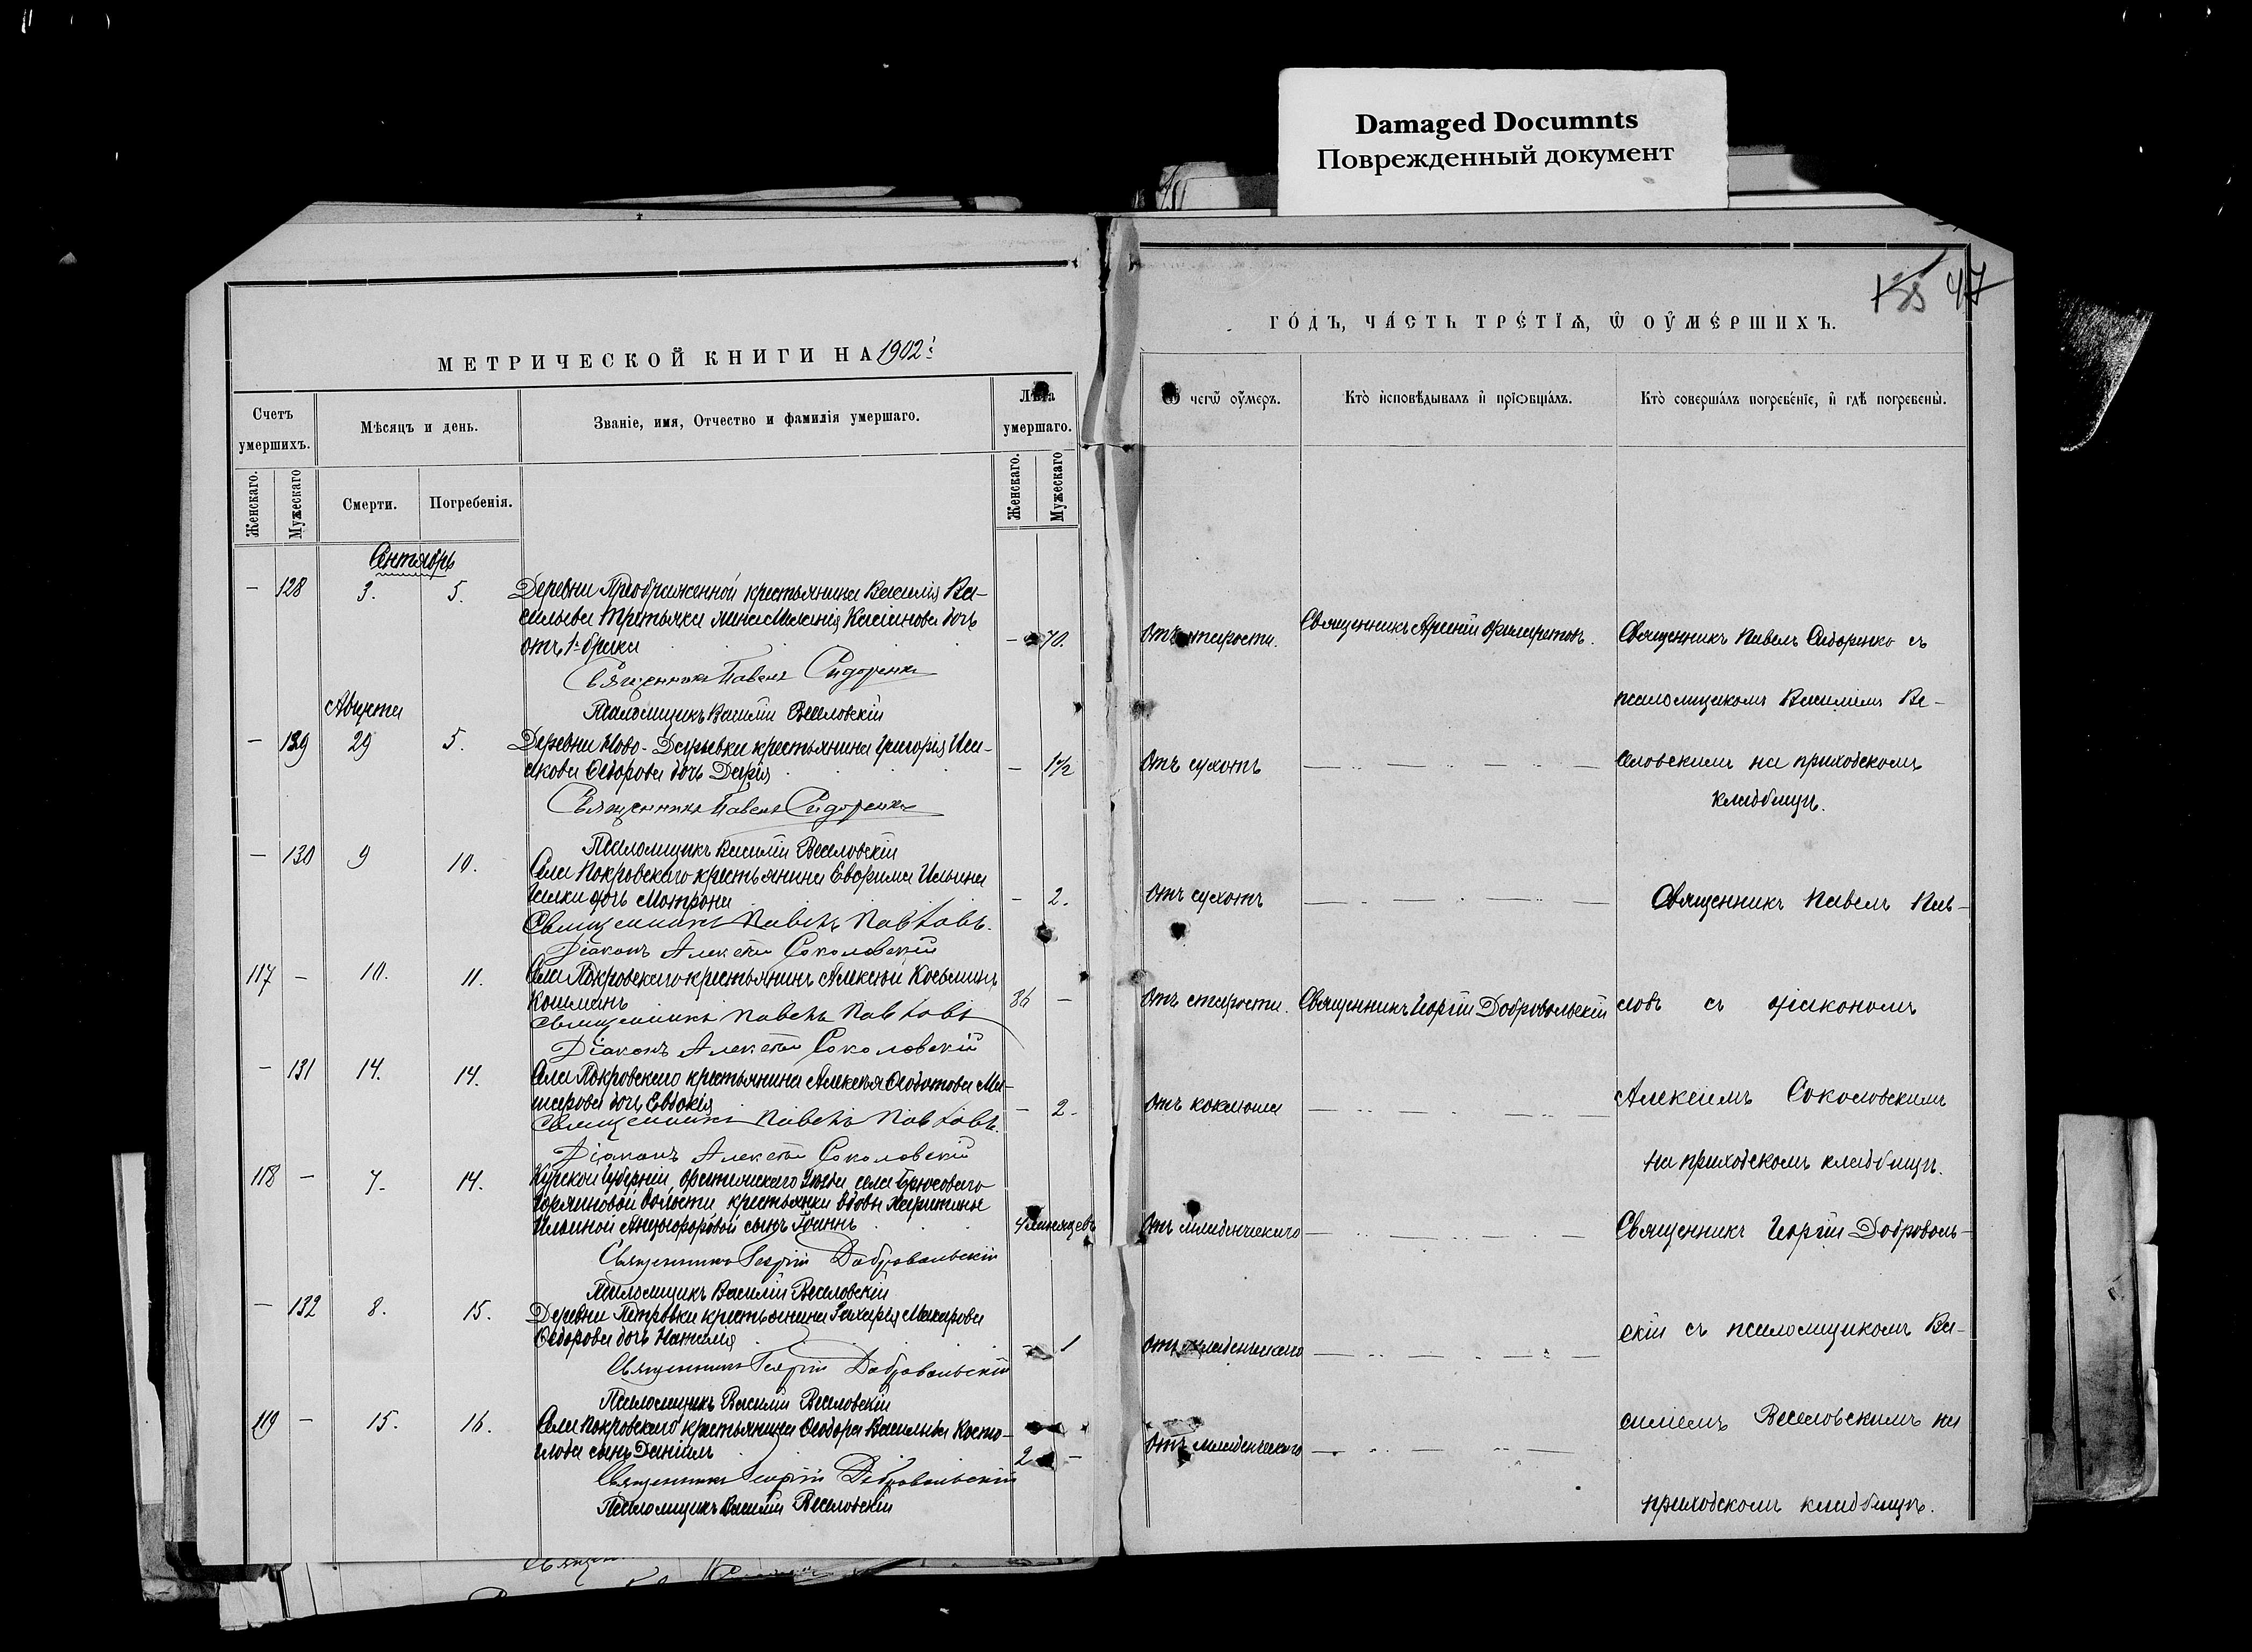 Damaged Documnts
Поврежденный документ
47
МЕТРИЧЕСКОЙ КНИГИ НА 1902
ГО́ДЪ, ЧА́СТЬ ТРЕ́ТІѦ, Ѿ ОУ҆МЕ́РШИХЪ.
Счетъ умершихъ.
Мѣсяцъ и день.
Званіе, имя, Отчество и фамилія умершаго.
Лѣта умершаго.
Ѿ чегѡ̀ оу҆́меръ.
Кто̀ и҆сповѣ́дывалъ и҆ прїѻбща́лъ.
Кто̀ соверша́лъ погребе́нїе, и҆ гдѣ̀ погребены̀.
Женскаго.
Мужескаго
Смерти.
Погребенія.
Женскаго.
Мужескаго
Сентябрь
— 128 3. 5. Деревни Преображенной крестьянина Василія Ва-
сильева Третьяка жена Меланія Касіанова дочь
отъ 1 брака — 70. Отъ старости. Священникъ Арсеній Филаретовъ. Священникъ Павелъ Сидоренко съ
Священникъ Павелъ Сидоренко
Августа
Псаломщикъ Василій Веселовскій
псаломщикомъ Василіемъ Ве-
— 129 29 5. Деревни Ново-Дарьевки крестьянина Григорія Иса-
акова Ѳедорова дочь Дарія — 1½ Отъ сухотъ — селовскимъ на приходскомъ
кладбищѣ.
Священникъ Павелъ Сидоренко
Псаломщикъ Василій Веселовскій
— 130 9 10. Села Покровскаго крестьянина Евфима Ильина
дочь Матрона — 2. Отъ сухотъ — Священникъ Павелъ Пав-
Священникъ Павелъ Павловъ.
Діаконъ Алексѣй Соколовскій
117 — 10. 11. Села Покровскаго крестьянинъ Алексѣй Косьминъ
Кошманъ 86 — Отъ старости. Священникъ Георгій Добровольскій ловъ съ діакономъ
Священникъ Павелъ Павловъ
Діаконъ Алексѣй Соколовскій
— 131 14. 14. Села Покровскаго крестьянина Алексѣя Ѳедотова
дочь Евдокія — 2. Отъ коклюша — Алексіемъ Соколовскимъ
Священникъ Павелъ Павловъ.
Діаконъ Алексѣй Соколовскій
на приходскомъ кладбищѣ.
118 — 7. 14. Курской Губерніи, уѣзда, села
волости крестьянки вдовы Харитины
Ильиной сынъ Іоаннъ 4 мѣсяцевъ Отъ младенческаго — Священникъ Георгій Доброволь-
Священникъ Георгій Добровольскій
Псаломщикъ Василій Веселовскій
— 132 8. 15. Деревни Петровки крестьянина Захарія Макарова
Ѳедорова дочь Наталія — 1 Отъ младенческаго — скій съ псаломщикомъ Ва-
Священникъ Георгій Добровольскій
Псаломщикъ Василій Веселовскій
119 — 15. 16. Села Покровскаго крестьянина Ѳеодора Васильева Косто-
глода сынъ Даніилъ 2 — Отъ младенческаго — силіемъ Веселовскимъ на
Священникъ Георгій Добровольскій
Псаломщикъ Василій Веселовскій
приходскомъ кладбищѣ.